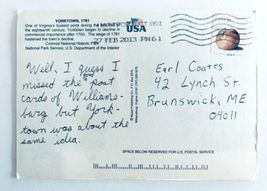 YORKTOWN, 1781
One of Virginia's busiest ports during the
the eighteenth century, Yorktown began to decline in
commercial importance after 1750. The siege of 1781
hastened the town's decline.
Colonial National Historical Park
National Park Service, U.S. Department of the Interior
USA
27 FEB 2013 PM 6 L
Well, I guess I
missed the good post
cards of Williams-
burg but York-
town was about the
same idea.
Earl Coates
42 Lynch St
Brunswick, ME
04011
SPACE BELOW RESERVED FOR U.S. POSTAL SERVICE